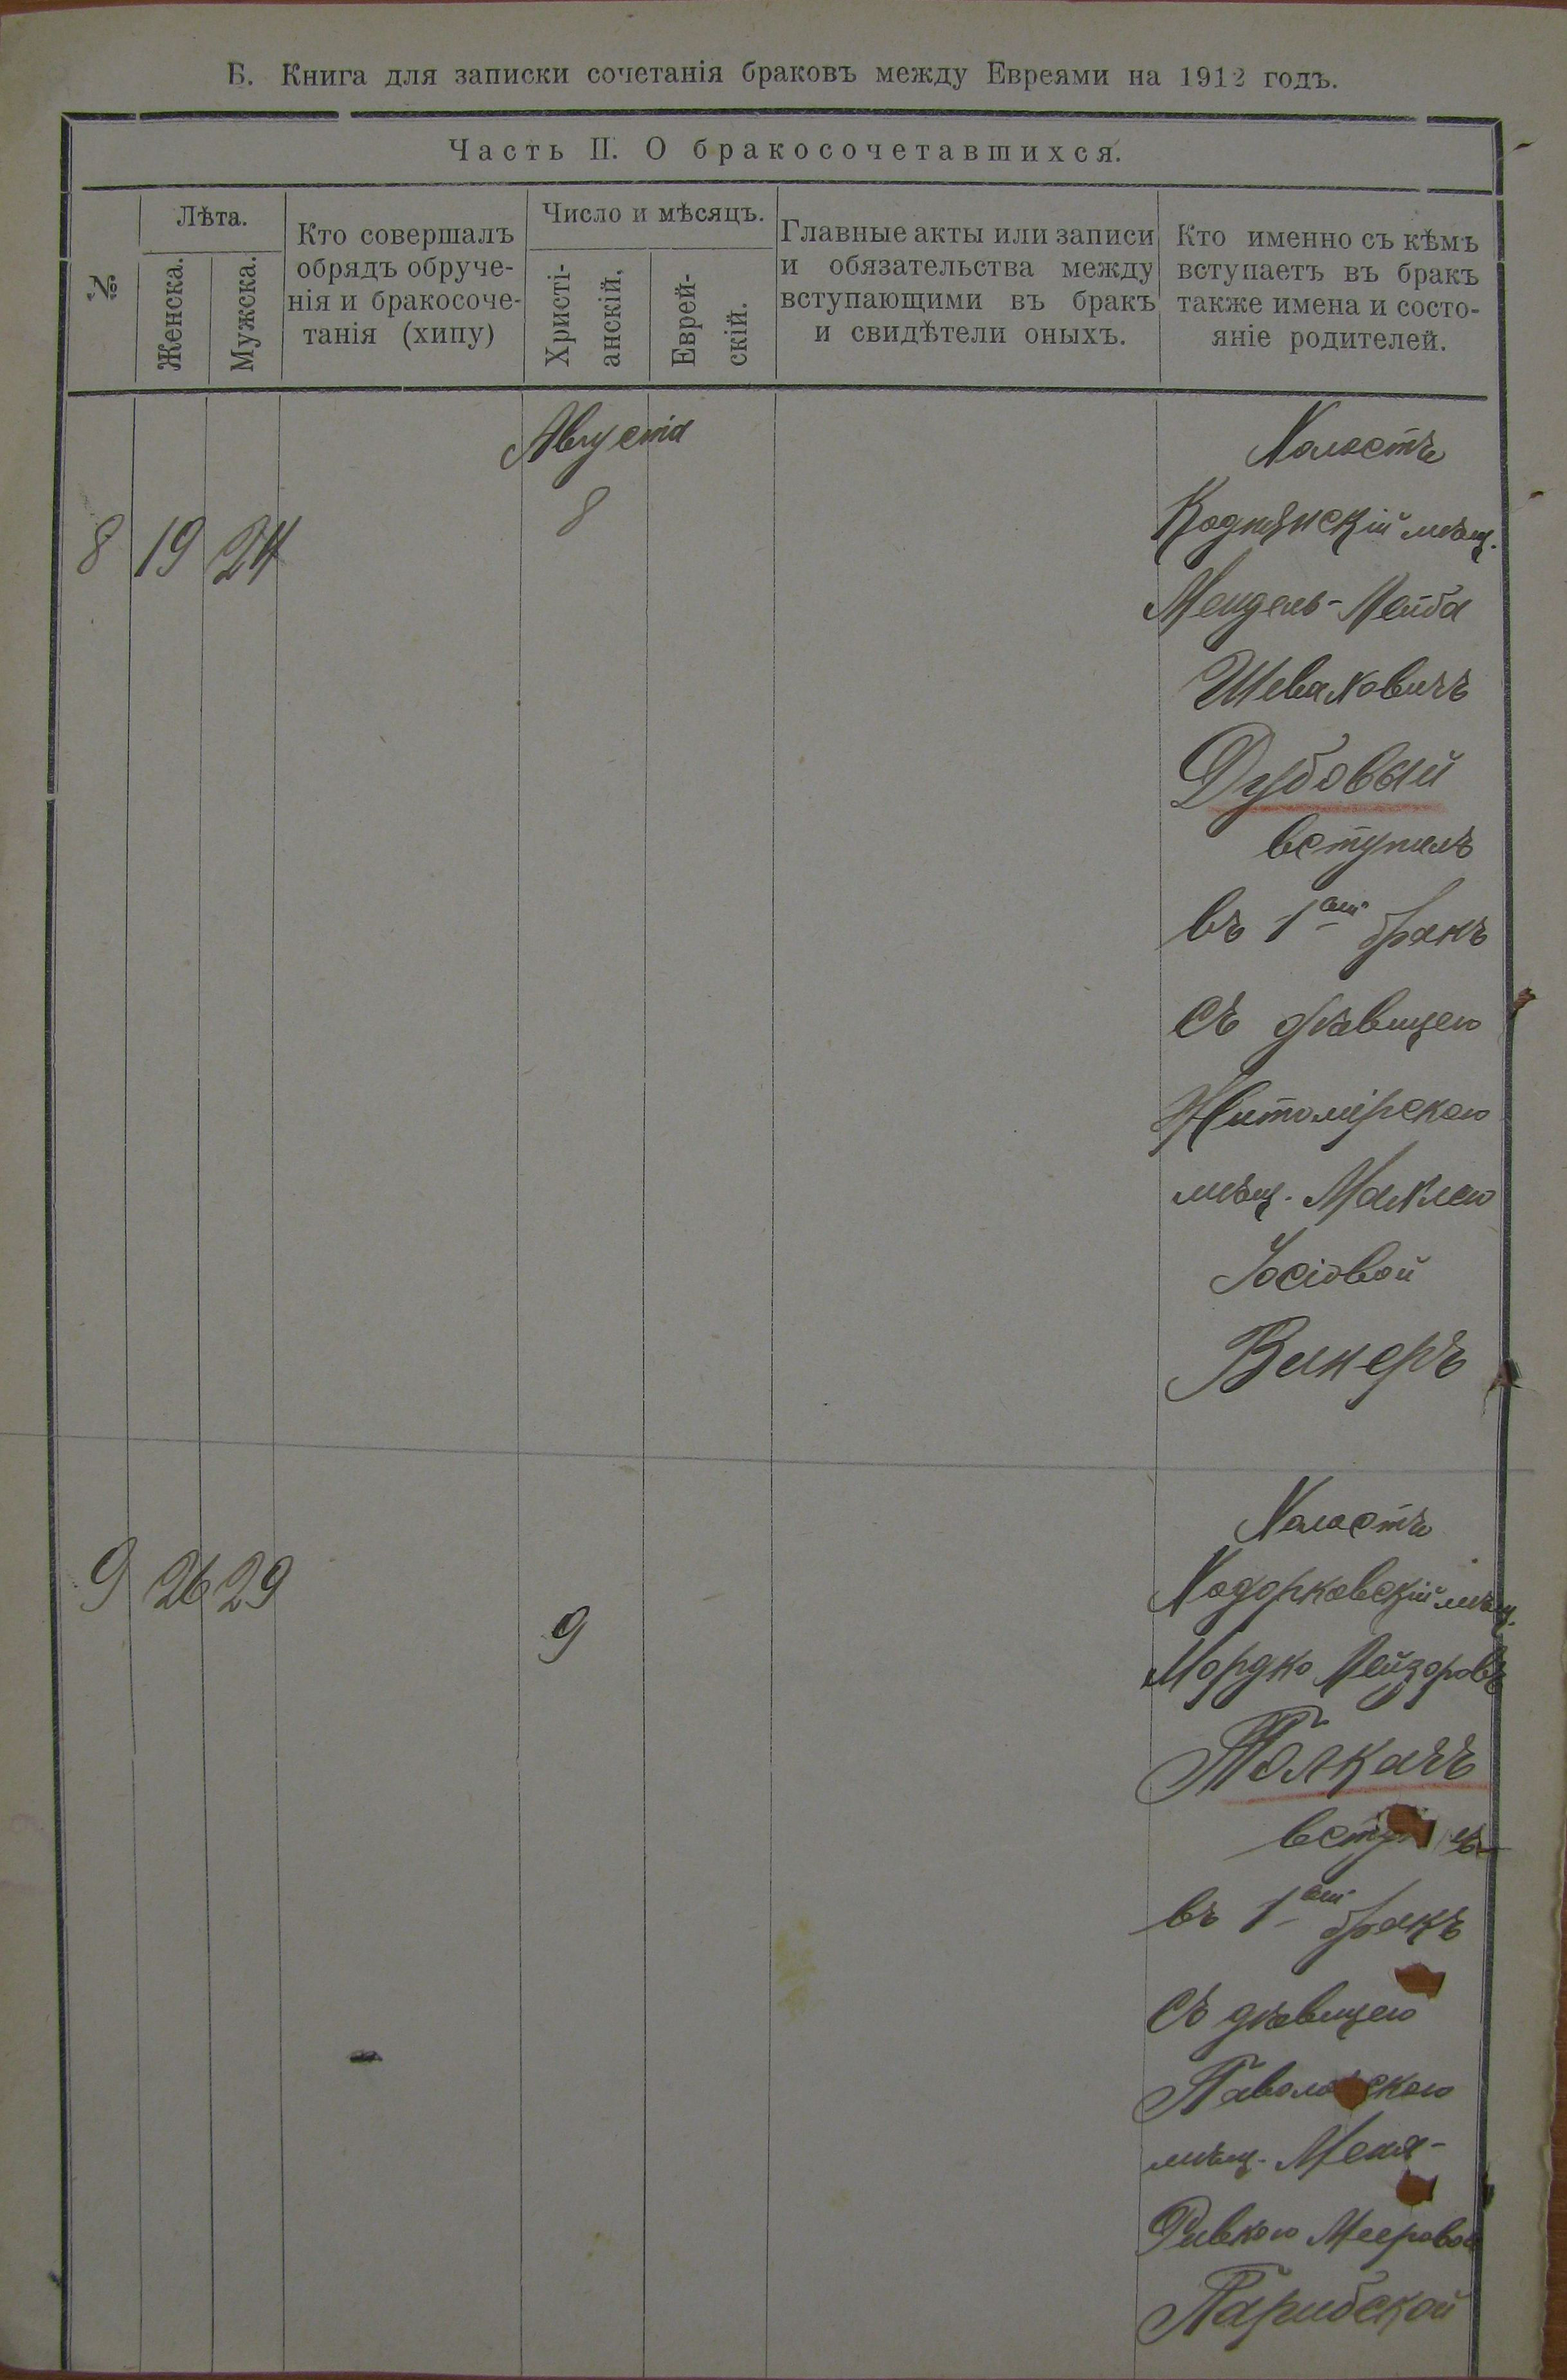 Б. Книга для записки сочетанія браковъ между Евреями на 1912 годъ.
Часть II. О бракосочетавшихся.
№
Лѣта.
Женска.
Мужска.
Кто совершалъ
обрядъ обруче-
нія и бракосоче-
танія (хипу)
Число и мѣсяцъ.
Христі-
анскій.
Еврей-
скій.
Главные акты или записи
и обязательства между
вступающими въ бракъ
и свидѣтели оныхъ.
Кто именно съ кѣмъ
вступаетъ въ бракъ
также имена и состо-
яніе родителей.
Августа
8 19 24
8
Холостъ
Коднянскій мѣщ.
Мендель-Лейба
Шеваховичъ
Дубовый
вступилъ
въ 1ый бракъ
съ дѣвицею
Житомірскою
мѣщ. Махлею
Іосіовой
Винеръ
9 26 29
9
Холостъ
Ходорковскій мѣщ.
Мордко Лейзоровъ
Толкачъ
въ 1ый бракъ
съ дѣвицею
мѣщ.
Ривкою Мееровой